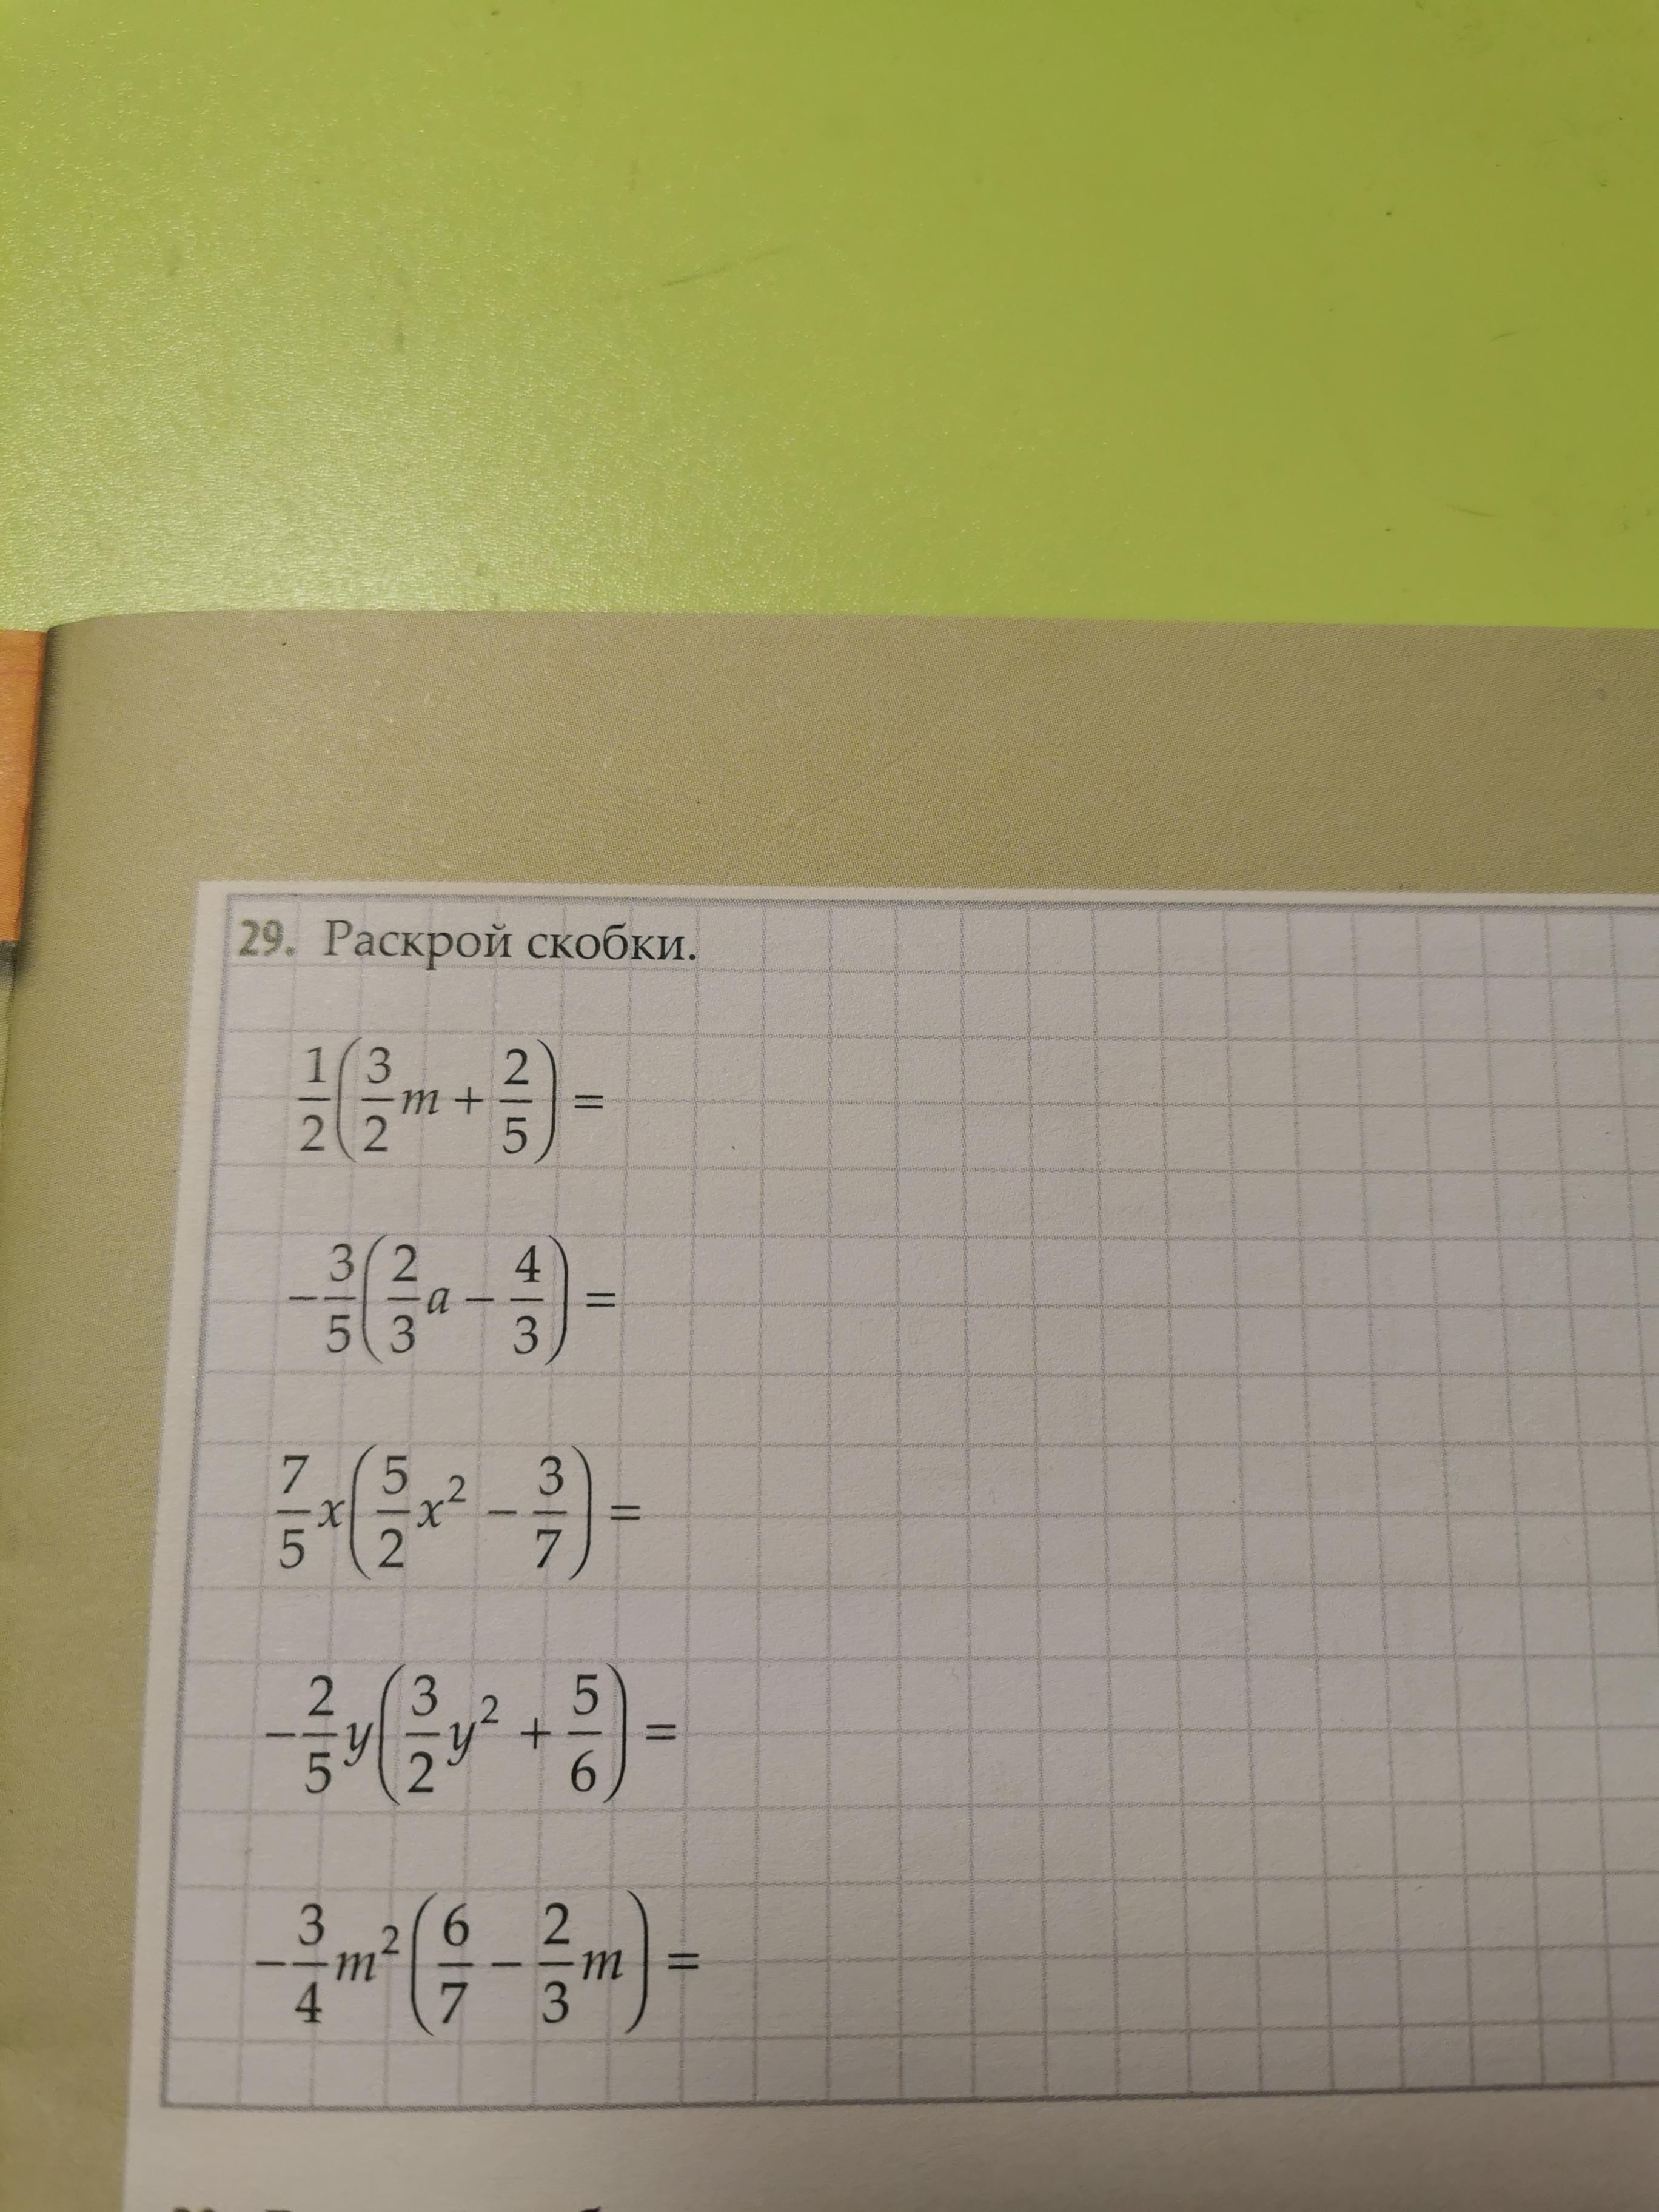 29. Раскрой скобки.
1/2(3/2 m + 2/5) =
-3/5(2/3 a - 4/3) =
7/5 x(5/2 x² - 3/7) =
-2/5 y(3/2 y² + 5/6) =
-3/4 m²(6/7 - 2/3 m) =